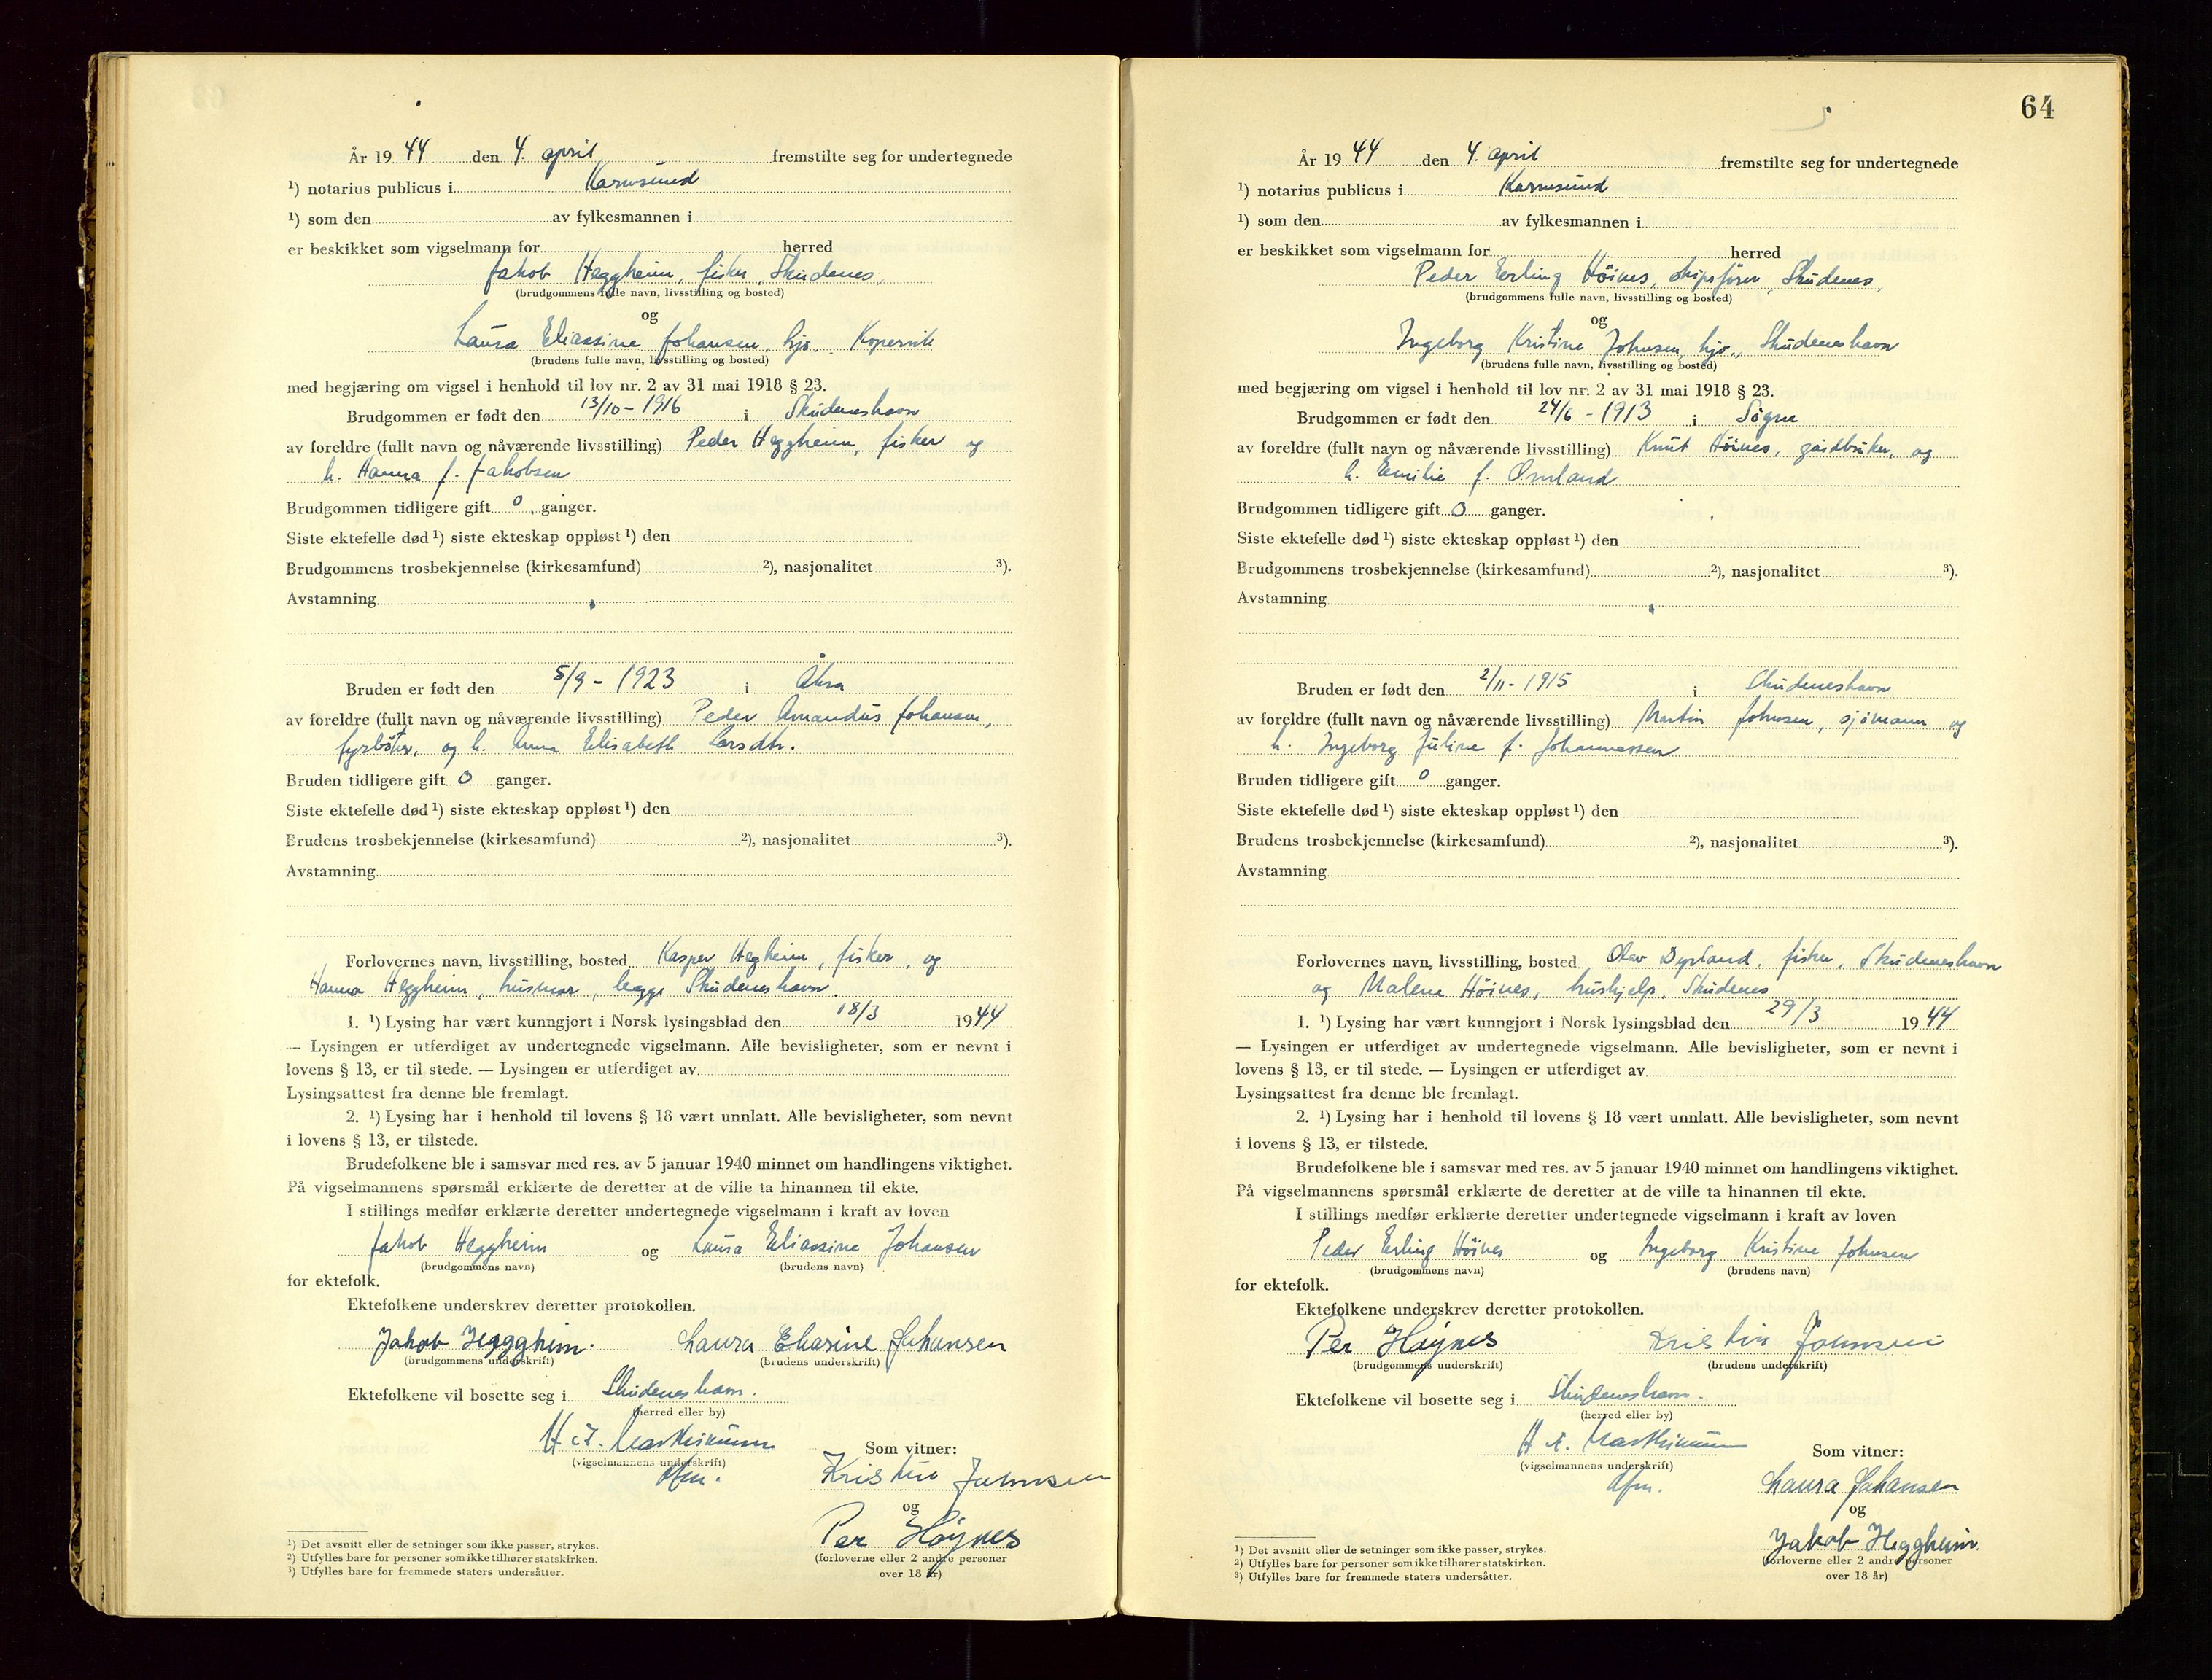 År 1944 den 4. april fremstilte seg for undertegnede
¹) notarius publicus i Karmsund
¹) som den av fylkesmannen i
er beskikket som vigselmann for herred
Jakob Heggheim, fisker, Skudenes,
(brudgommens fulle navn, livsstilling og bosted)
og
Laura Eliassine Johansen, hjv., Kopervik
(brudens fulle navn, livsstilling og bosted)
med begjæring om vigsel i henhold til lov nr. 2 av 31 mai 1918 § 23.
Brudgommen er født den 13/10 - 1916 i Skudeneshavn
av foreldre (fullt navn og nåværende livsstilling) Peder Heggheim, fisker og
h. Hanna f. Jakobsen
Brudgommen tidligere gift 0 ganger.
Siste ektefelle død ¹) siste ekteskap oppløst ¹) den
Brudgommens trosbekjennelse (kirkesamfund) ²), nasjonalitet ³).
Avstamning
Bruden er født den 5/9 - 1923 i Åkra
av foreldre (fullt navn og nåværende livsstilling) Peder Amandus Johansen,
fyrbøter, og h. Anna Elisabeth Larsdtr.
Bruden tidligere gift 0 ganger.
Siste ektefelle død ¹) siste ekteskap oppløst ¹) den
Brudens trosbekjennelse (kirkesamfund) ²), nasjonalitet ³).
Avstamning
Forlovernes navn, livsstilling, bosted Kasper Hegheim, fisker, og
Hanna Heggheim, husmor, begge Skudeneshavn.
1. ¹) Lysing har vært kunngjort i Norsk lysingsblad den 18/3 1944
— Lysingen er utferdiget av undertegnede vigselmann. Alle bevisligheter, som er nevnt i
lovens § 13, er til stede. — Lysingen er utferdiget av
Lysingsattest fra denne ble fremlagt.
2. ¹) Lysing har i henhold til lovens § 18 vært unnlatt. Alle bevisligheter, som nevnt
i lovens § 13, er tilstede.
Brudefolkene ble i samsvar med res. av 5 januar 1940 minnet om handlingens viktighet.
På vigselmannens spørsmål erklærte de deretter at de ville ta hinannen til ekte.
I stillings medfør erklærte deretter undertegnede vigselmann i kraft av loven
Jakob Heggheim og Laura Eliassine Johansen
(brudgommens navn) (brudens navn)
for ektefolk.
Ektefolkene underskrev deretter protokollen.
Jakob Heggheim. Laura Eliasine Johansen
(brudgommens underskrift) (brudens underskrift)
Ektefolkene vil bosette seg i Skudeneshavn.
(herred eller by)
Som vitner:
(vigselmannens underskrift)
Kristin Johnsen
og
Per Höynes
(forloverne eller 2 andre personer
over 18 år)
¹) Det avsnitt eller de setninger som ikke passer, strykes.
²) Utfylles bare for personer som ikke tilhører statskirken.
³) Utfylles bare for fremmede staters undersåtter.
64
År 1944 den 4. april fremstilte seg for undertegnede
¹) notarius publicus i Karmsund
¹) som den av fylkesmannen i
er beskikket som vigselmann for herred
Peder Erling Höines, skipsfører, Skudenes,
(brudgommens fulle navn, livsstilling og bosted)
og
Ingeborg Kristine Johnsen, hjv., Skudeneshavn
(brudens fulle navn, livsstilling og bosted)
med begjæring om vigsel i henhold til lov nr. 2 av 31 mai 1918 § 23.
Brudgommen er født den 24/6 - 1913 i Søgne
av foreldre (fullt navn og nåværende livsstilling) Knut Höines, gårdbruker, og
h. Emilie f. Omland
Brudgommen tidligere gift 0 ganger.
Siste ektefelle død ¹) siste ekteskap oppløst ¹) den
Brudgommens trosbekjennelse (kirkesamfund) ²), nasjonalitet ³).
Avstamning
Bruden er født den 2/11 - 1915 i Skudeneshavn
av foreldre (fullt navn og nåværende livsstilling) Martin Johnsen, sjömann og
h. Ingeborg Juline f. Johannessen
Bruden tidligere gift 0 ganger.
Siste ektefelle død ¹) siste ekteskap oppløst ¹) den
Brudens trosbekjennelse (kirkesamfund) ²), nasjonalitet ³).
Avstamning
Forlovernes navn, livsstilling, bosted Olav Dyrland, fisker, Skudeneshavn
og Malene Höines, hushjelp, Skudenes
1. ¹) Lysing har vært kunngjort i Norsk lysingsblad den 29/3 1944
— Lysingen er utferdiget av undertegnede vigselmann. Alle bevisligheter, som er nevnt i
lovens § 13, er til stede. — Lysingen er utferdiget av
Lysingsattest fra denne ble fremlagt.
2. ¹) Lysing har i henhold til lovens § 18 vært unnlatt. Alle bevisligheter, som nevnt
i lovens § 13, er tilstede.
Brudefolkene ble i samsvar med res. av 5 januar 1940 minnet om handlingens viktighet.
På vigselmannens spørsmål erklærte de deretter at de ville ta hinannen til ekte.
I stillings medfør erklærte deretter undertegnede vigselmann i kraft av loven
Peder Erling Höines og Ingeborg Kristine Johnsen
(brudgommens navn) (brudens navn)
for ektefolk.
Ektefolkene underskrev deretter protokollen.
Per Höynes Kristin Johnsen
(brudgommens underskrift) (brudens underskrift)
Ektefolkene vil bosette seg i Skudeneshavn.
(herred eller by)
Som vitner:
(vigselmannens underskrift)
Laura Johansen
og
Jakob Heggheim.
(forloverne eller 2 andre personer
over 18 år)
¹) Det avsnitt eller de setninger som ikke passer, strykes.
²) Utfylles bare for personer som ikke tilhører statskirken.
³) Utfylles bare for fremmede staters undersåtter.